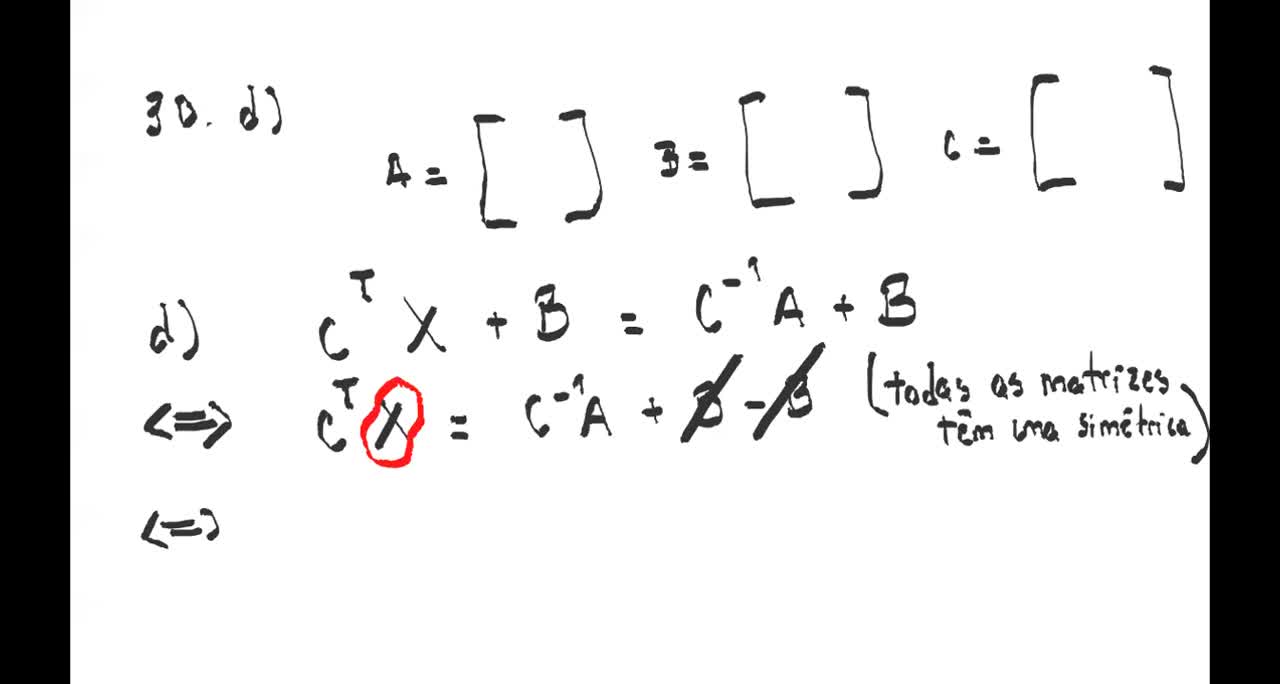 30. d)
A = [ ] B = [ ] C = [ ]
d) C^T X + B = C^-1 A + B
<=> C^T X = C^-1 A + B - B (todas as matrizes
têm uma simétrica)
<=>